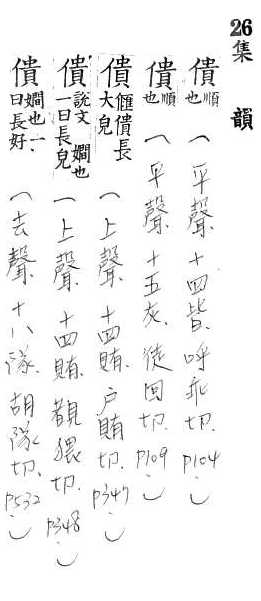 26集 韻
僓順也(平聲.十四皆.呼乖切.P104.)
僓順也(平聲.十五灰.徒回切.P109.)
僓𠊱僓長大皃(上聲.十四賄.戶賄切.P347.)
僓說文嫺也一曰長皃(上聲.十四賄.覩猥切.P348.)
僓嫺也一曰長好(去聲.十八隊.胡隊切.P532.)